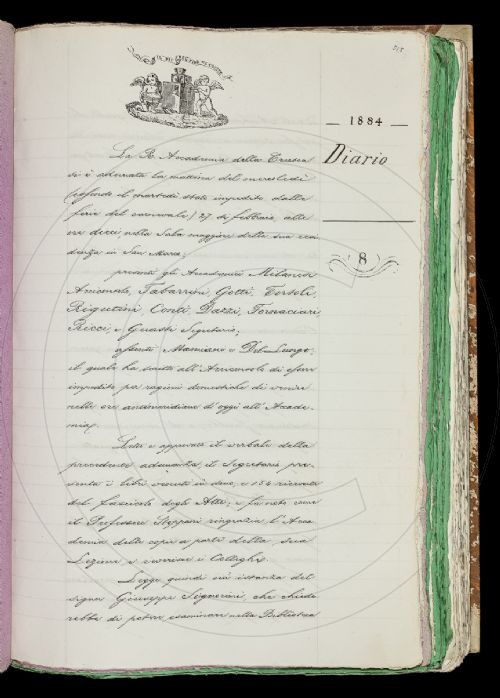 — 1884 —
Diario
8
La R. Accademia della Crusca
si è adunata la mattina del mercoledì
(essendo il martedì stato impedito dalle
ferie del carnevale) 27 di febbraio, alle
ore dieci, nella Sala maggiore della sua resi
denza in San Marco;
presenti gli Accademici Milanesi
Arciconsolo, Tabarrini, Gotti, Tortoli,
Rigutini, Conti, Dazzi, Fornaciari,
Ricci, e Guasti Segretario;
assenti Mamiani e Del Lungo;
il quale ha scritto all'Arciconsolo di esser
impedito per ragioni domestiche di venire
nelle ore antimeridiane d'oggi all'Accade-
mia.
Letto e approvato il verbale della
precedente adunanza, il Segretario pre-
senta i libri venuti in dono, e 134 ricevute
del fascicolo degli Atti; e fa noto come
il Professore Stoppani ringrazia l'Acca
demia delle copie a parte della sua
Lezione, e riverisce i Colleghi.
Legge quindi un'istanza del
signor Giuseppe Signorini, che chiede
rebbe di poter esaminare nella Biblioteca